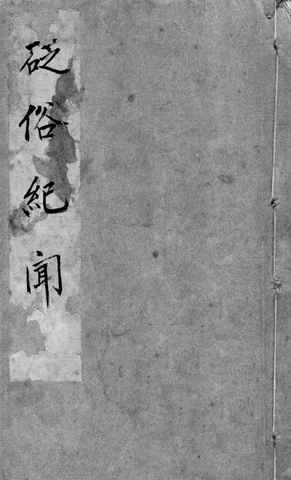 砭俗紀聞